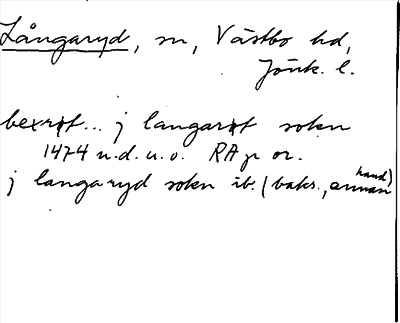 Långaryd, sn, Västbo hd,
Jönk. l.
bexryt... j langaryt sokn
1474 u.d. u.o. RA p or.
j langaryd sokn ib. (baks., annan hand)